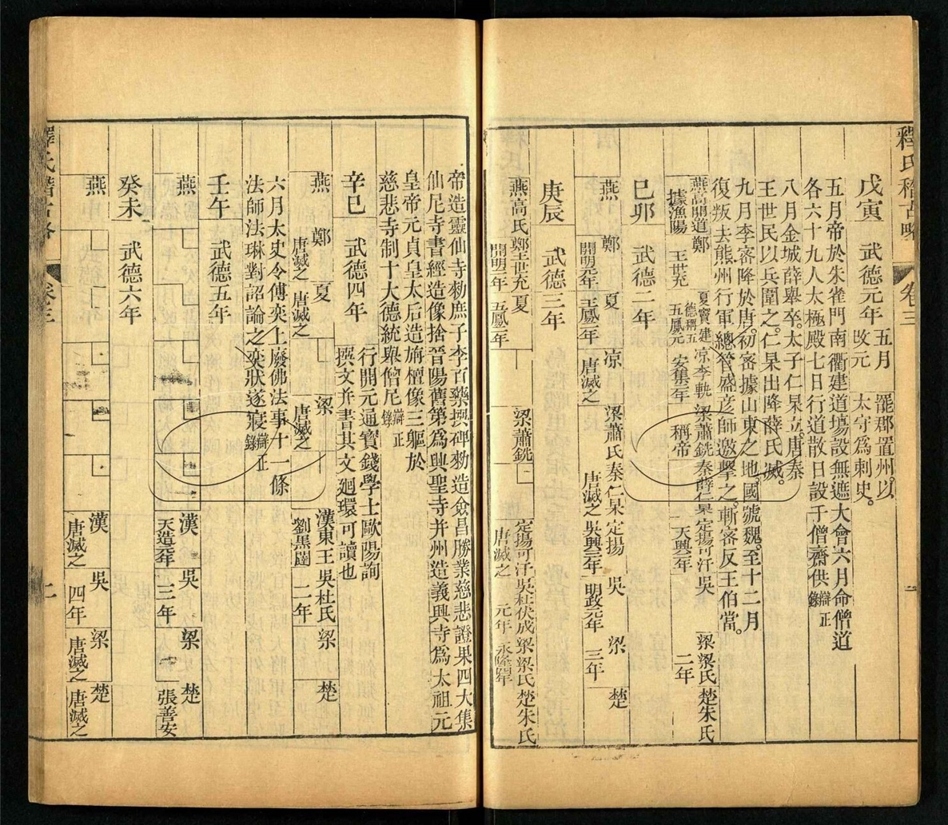 釋氏稽古略 卷三
戊寅 武德元年 五月改元 罷郡置州以太守為刺史
五月帝於朱雀門南衢建道塲設無遮大會六月命僧道
各六十九人太極殿七日行道散日設千僧齋供辯正錄
八月金城薛舉卒太子仁杲立唐秦
王世民以兵圍之仁杲出降薛氏滅
九月李密降於唐初密據山東之地國號魏至十二月
復叛去熊州行軍總管盛彥師邀擊之斬密密反王伯當
燕高開道據漁陽 鄭王世充 夏竇建德稱五鳳元 凉李軌安樂二年 梁蕭銑稱帝 秦薛仁杲 定揚可汗天興二年 吳 梁梁氏二年 楚朱氏
己卯 武德二年
燕 鄭開明元年 夏五鳳二年 凉唐滅之 梁蕭氏 秦仁杲唐滅之 定揚天興三年 吳明政元年 梁三年 楚
庚辰 武德三年
燕高氏 鄭王世充開明二年 夏五鳳三年 梁蕭銑 定揚可汗唐滅之 吳杜伏威元年 梁梁氏永隆 楚朱氏
帝造靈仙寺勅庶子李百藥撰碑勅造會昌勝業慈悲證果四大集
仙尼寺書經造像捨晉陽舊第為興聖寺并州造義興寺為太祖元
皇帝元貞皇太后造旃檀像三軀於
慈悲寺制十大德統舉僧尼辯正錄
辛巳 武德四年 行開元通寳錢學士歐陽詢
撰文并書其文廻環可讀也
燕 鄭唐滅之 夏唐滅之 梁唐滅之 漢漢東王劉黑闥 吳杜氏二年 梁 楚
六月太史令傅奕上廢佛法事十一條
法師法琳對詔論之奕狀遂寢辯正錄
壬午 武德五年
燕 漢天造元年 吳三年 梁 楚張善安
癸未 武德六年
燕 漢唐滅之 吳四年 梁唐滅之 楚唐滅之
釋氏稽古略 卷三 二